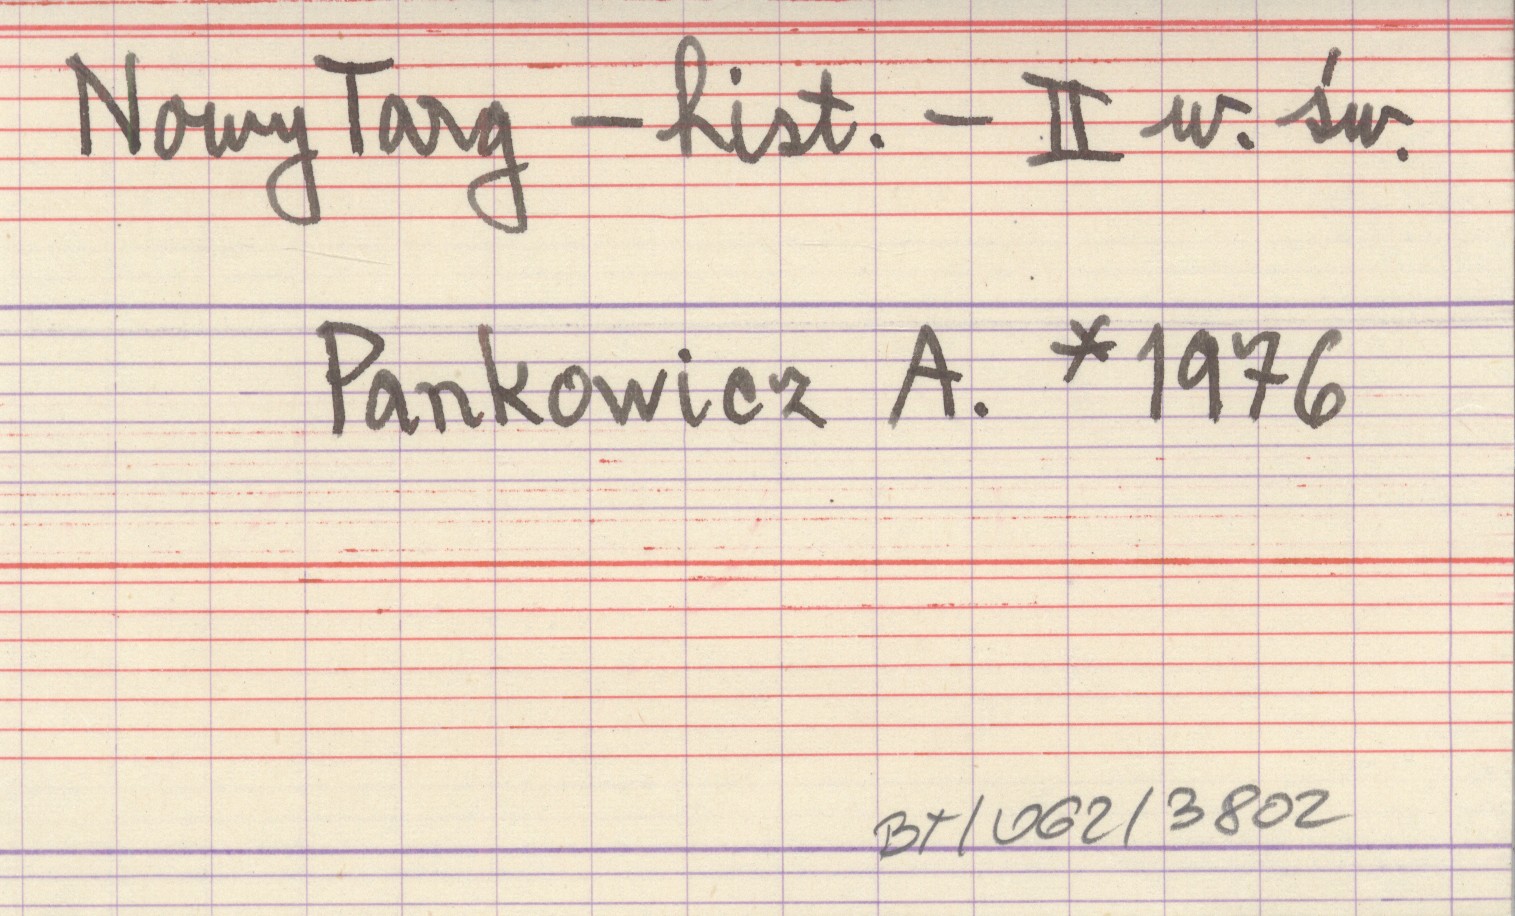 Nowy Targ – hist. – II w. św.
Pankowicz A. *1976
BT/062/3802